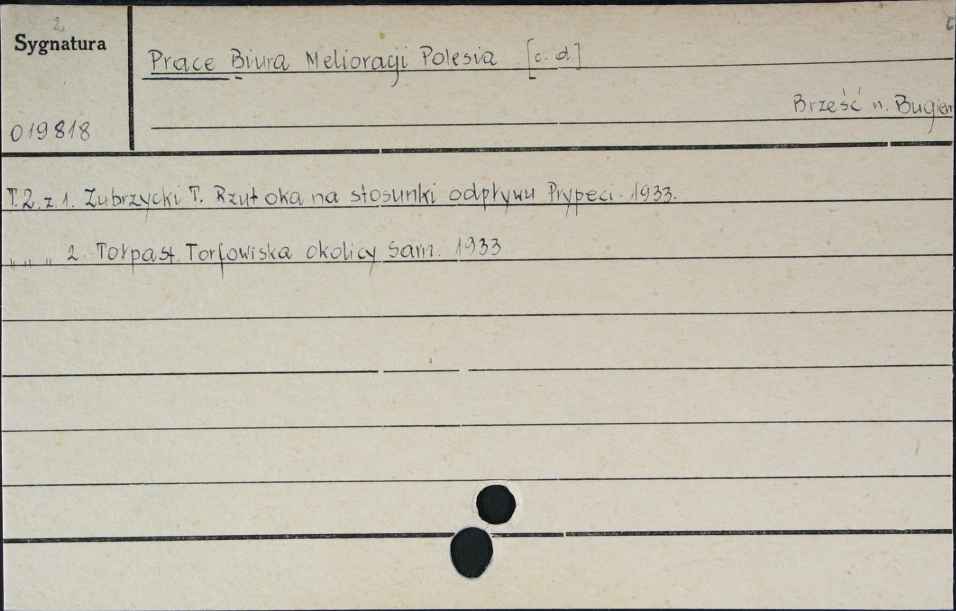 2
Sygnatura
Prace Biura Melioracji Polesia [c. d.]
Brześć n. Bugiem
019818
T. 2. z. 1. Zubrzycki T. Rzut oka na stosunki odpływu Prypeci. 1933.
„ „ „ 2. Tołpa St. Torfowiska okolicy Sarn. 1933